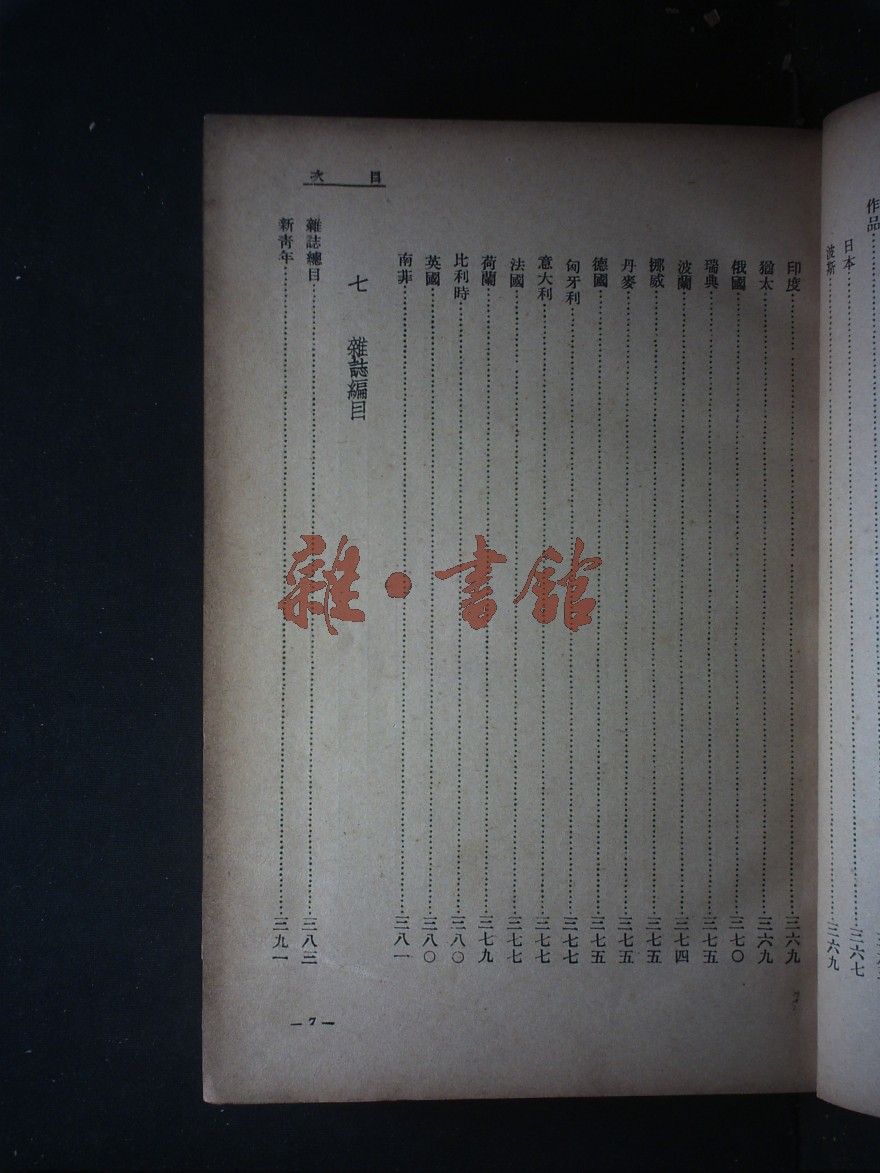 作品……
日本……三六七
波斯……三六九
目次
印度……三六九
猶太……三六九
俄國……三七〇
瑞典……三七五
波蘭……三七四
挪威……三七五
丹麥……三七五
德國……三七五
匈牙利……三七七
意大利……三七七
法國……三七七
荷蘭……三七九
比利時……三八〇
英國……三八〇
南非……三八一
七 雜誌編目
雜誌總目……三八三
新青年……三九一
— 7 —
雜·書館